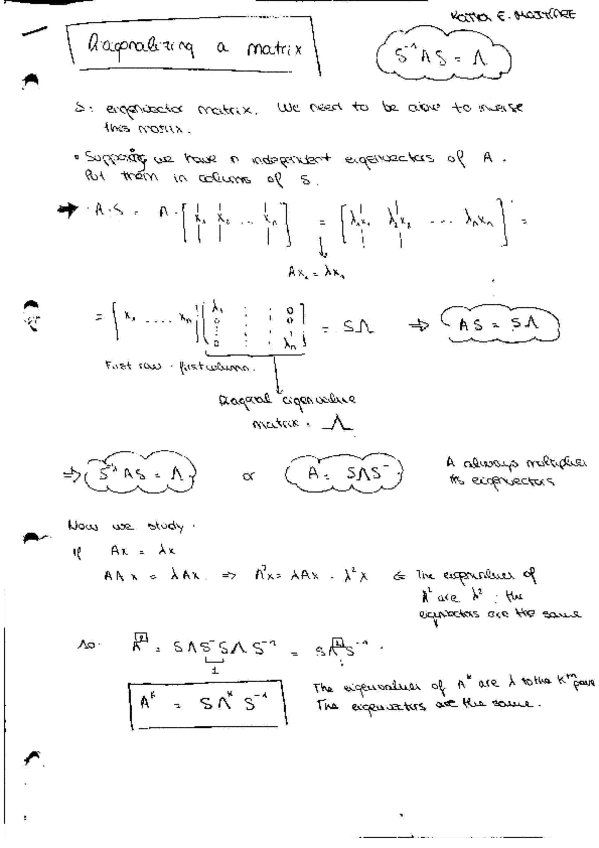 Katia E. MAJTARE
Diagonalizing a matrix
S⁻¹AS = Λ
S: eigenvector matrix. We need to be able to inverse
this matrix.
• Supposing we have n independent eigenvectors of A.
Put them in columns of S.
→ A·S = A·[x₁ x₂ ... xₙ] = [λ₁x₁ λ₂x₂ ... λₙxₙ] =
Ax₁ = λx₁
= [x₁ .... xₙ] [λ₁ 0 0 : : 0 0 λₙ] = SΛ ⇒ AS = SΛ
First row · first column.
Diagonal eigenvalue
matrix. Λ
⇒ S⁻¹AS = Λ or A = SΛS⁻
A always multiplies
its eigenvectors
Now we study.
If Ax = λx
AAx = λAx ⇒ A²x = λAx = λ²x ⇐ The eigenvalues of
A² are λ²; the
eigenvectors are the same
so. A² = SΛS⁻SΛS⁻¹ = SΛ²S⁻¹.
1
Aᵏ = SΛᵏS⁻¹
The eigenvalues of Aᵏ are λ to the Kᵗʰ power
The eigenvectors are the same.